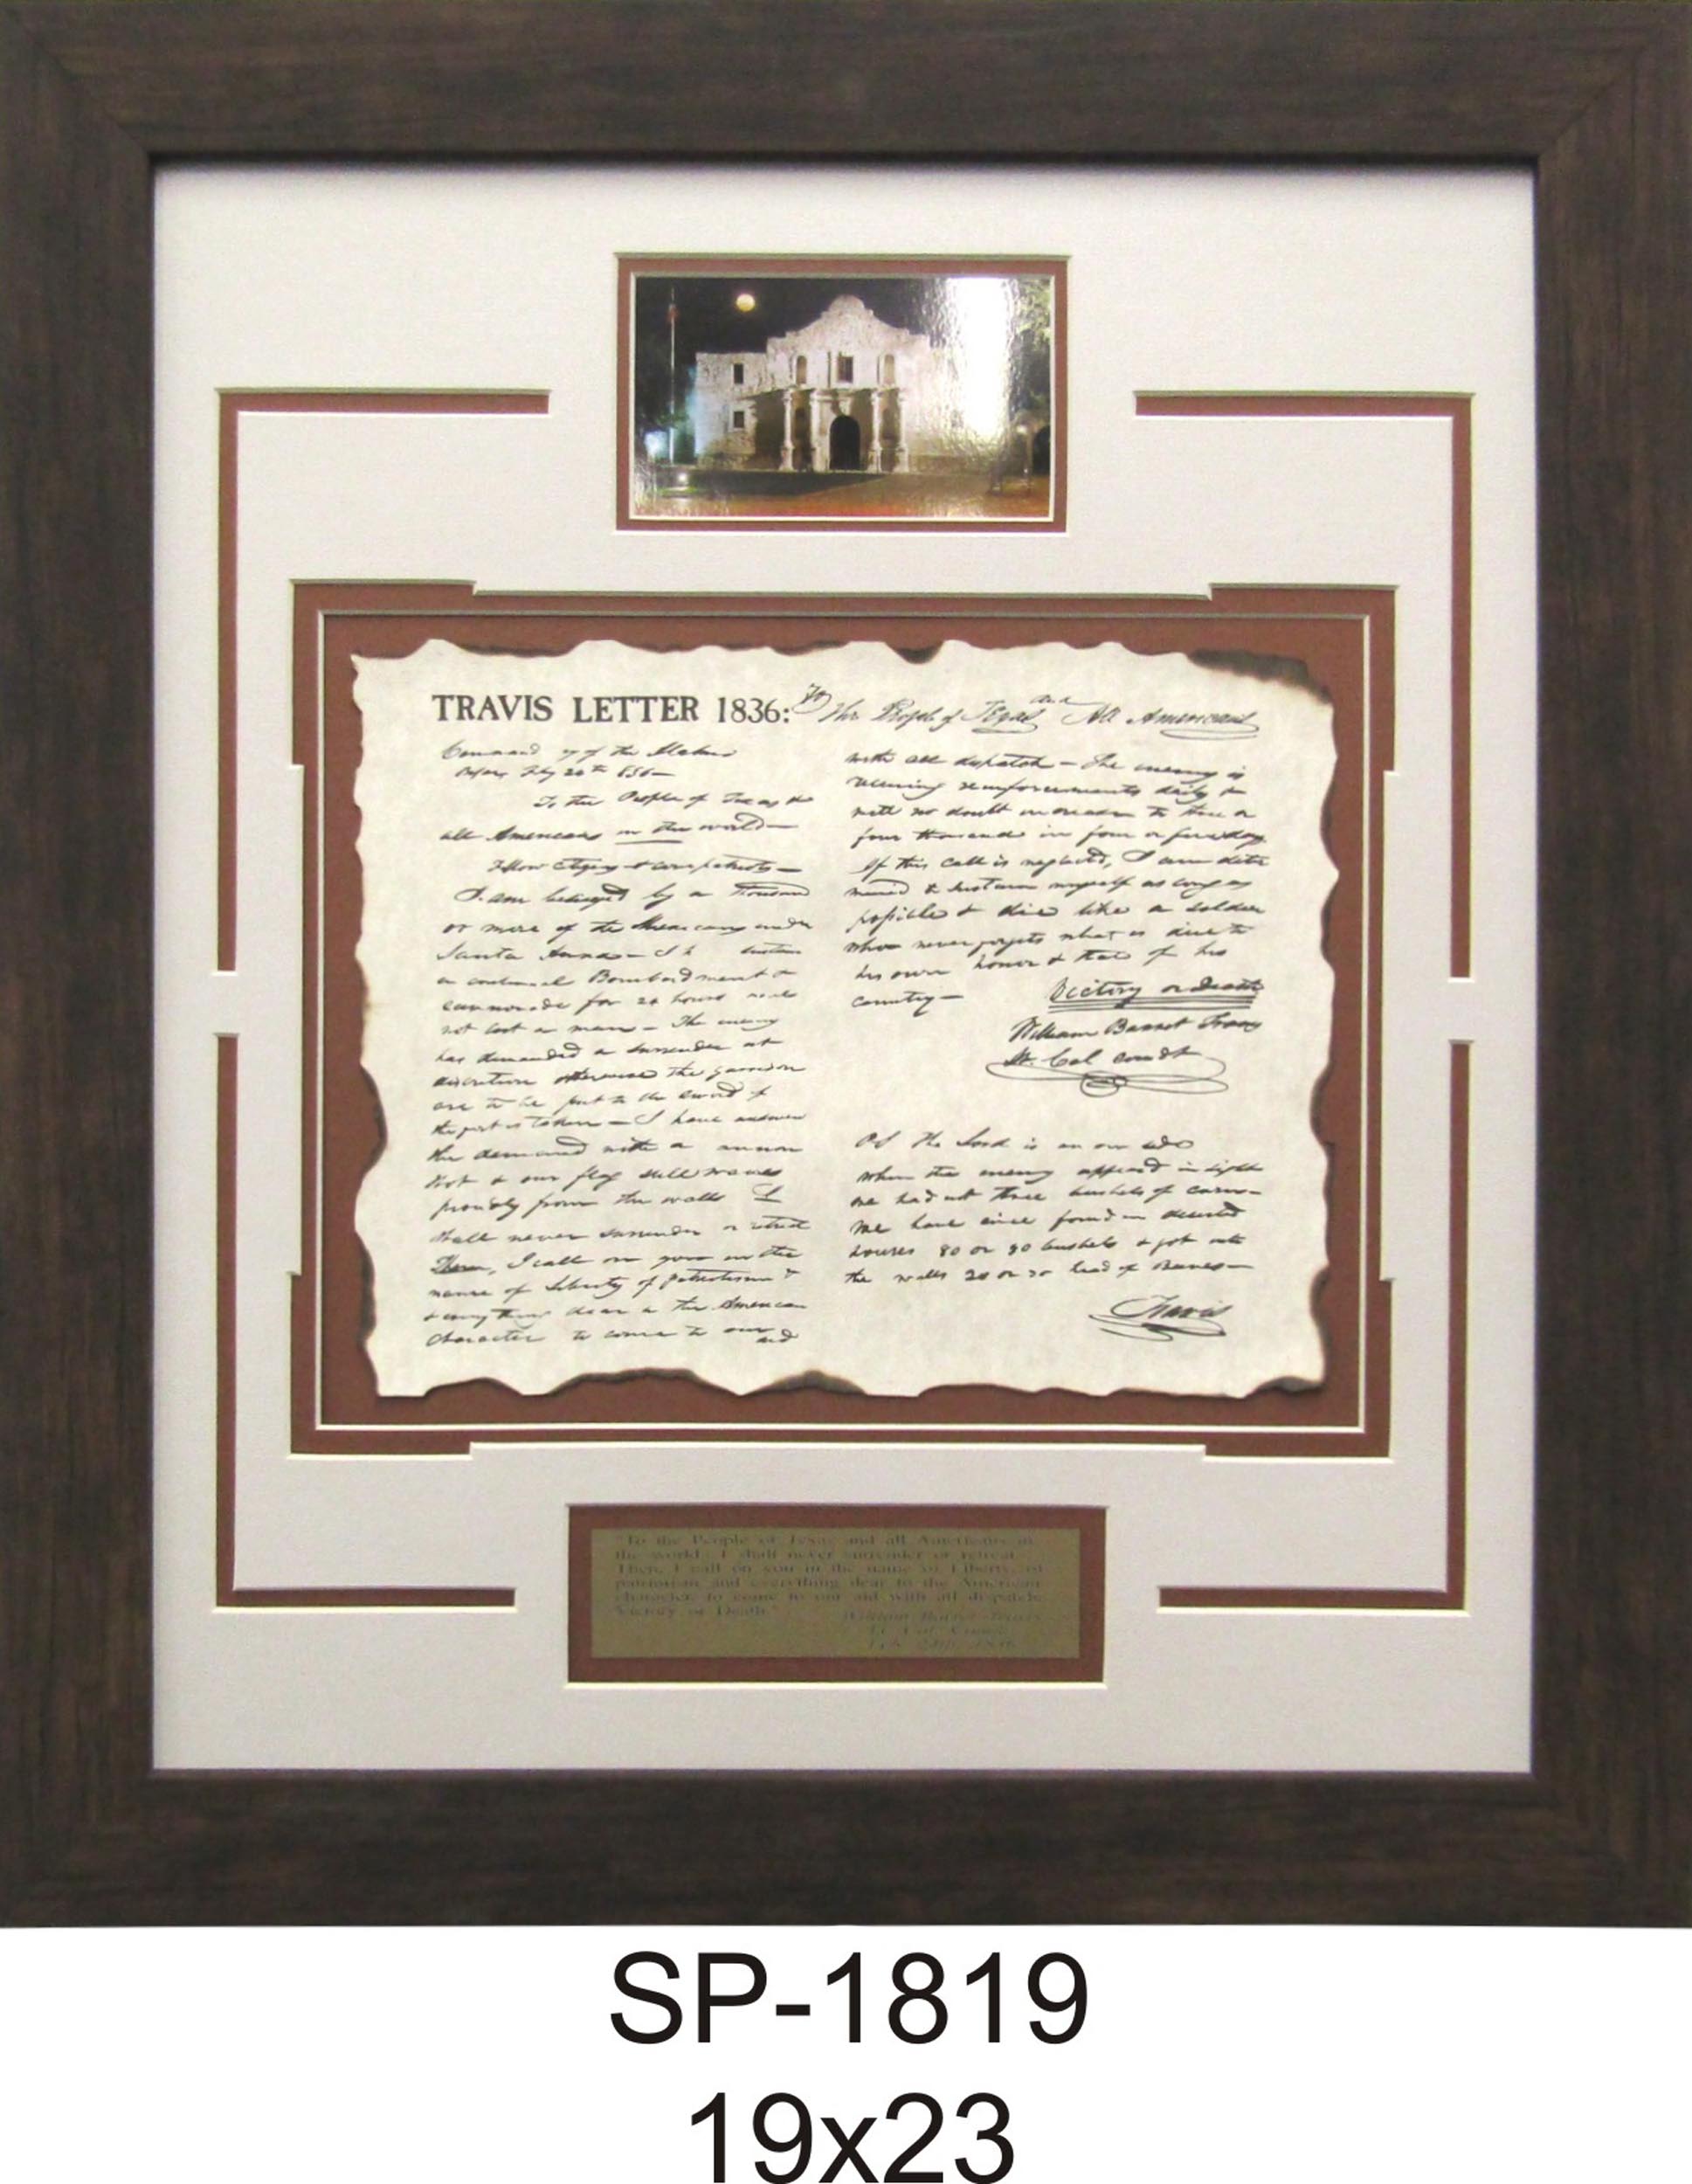 TRAVIS LETTER 1836: To The People of Texas and All Americans
Command y of the Alamo
Bejar, Feby 24th 1836—
To the People of Texas &
all Americans in the world—
Fellow citizens & compatriots—
I am besieged by a thousand
or more of the Mexicans under
Santa Anna — I h sustain
a continual Bombardment &
cannonade for 24 hours & have
not lost a man — The enemy
has demanded a surrender at
discretion otherwise the garrison
are to be put to the sword if
the fort is taken — I have answered
the demand with a cannon
shot & our flag still waves
proudly from the walls I
shall never surrender or retreat
Then, I call on you in the
name of Liberty, of patriotism &
& every thing dear to the American
character to come to our aid
with all dispatch — The enemy is
receiving reinforcements daily &
will no doubt increase to three or
four thousand in four or five days
If this call is neglected, I am deter
mined to sustain myself as long as
possible & die like a soldier
who never forgets what is due to
his own honor & that of his
country —
Victory or Death
William Barret Travis
Lt. Col comdt
PS The Lord is on our side
when the enemy appeared in sight
we had not three bushels of corn—
We have since found in deserted
houses 80 or 90 bushels & got into
the walls 20 or 30 head of Beeves—
Travis
"To the People of Texas and all Americans in
the world. I shall never surrender or retreat.
Then, I call on you in the name of Liberty, of
patriotism and everything dear to the American
character, to come to our aid with all dispatch.
Victory or Death."
William Barret Travis
Lt. Col. Comdt.
Feb. 24th, 1836
SP-1819
19x23